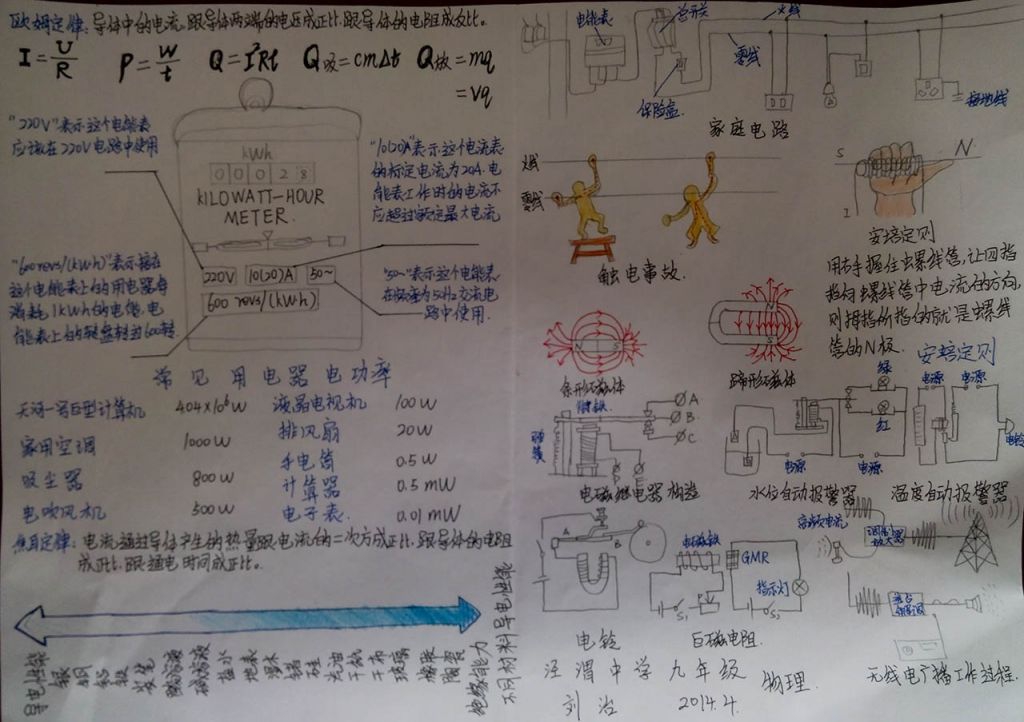 欧姆定律:导体中的电流,跟导体两端的电压成正比,跟导体的电阻成反比。
I=U/R P=W/t Q=I²Rt Q吸=cmΔt Q放=mq
=Vq
"220V"表示这个电能表
应该在220V电路中使用
"10(20)A"表示这个电流表
的标定电流为20A.电
能表工作时的电流不
应超过额定最大电流
kWh
00028
KILOWATT-HOUR
METER.
220V 10(20)A 50~
600 revs/(kWh)
"600revs/(kWh)"表示接在
这个电能表上的用电器每
消耗1kWh的电能,电
能表上的转盘转过600转
"50~"表示这个电能表
在频率为50Hz交流电
路中使用.
常见用电器电功率
天河一号巨型计算机 4.04×10⁶W 液晶电视机 100W
家用空调 1000W 排风扇 20W
吸尘器 800W 手电筒 0.5W
计算器 0.5mW
电吹风机 500W 电子表. 0.01mW
焦耳定律:电流通过导体产生的热量跟电流的二次方成正比,跟导体的电阻
成正比,跟通电时间成正比。
导电性能
银
铜
铝
铁
炭笔
酸溶液
碱溶液
盐水
地表
湿木
锗
硅
汽油
干纸
干布
玻璃
橡胶
陶瓷
绝缘能力
不同材料导电性能
电能表
总开关
火线
零线
保险盒.
接地线
家庭电路
火线
零线
触电事故.
S N
I
安培定则
用右手握住螺线管,让四指
指向螺线管中电流的方向,
则拇指所指的就是螺线
管的N极.
安培定则
N S
条形磁体
蹄形磁体
衔铁
弹簧
A
B
C
D
E
电磁继电器构造
绿
红
电源
电源
水位自动报警器
电源
电源
电铃
温度自动报警器
A B
电铃
电磁铁
GMR
指示灯
S₁ S₂
巨磁电阻.
高频电流
无线电广播工作过程.
泾渭中学 九年级 物理.
刘治 2014.4.